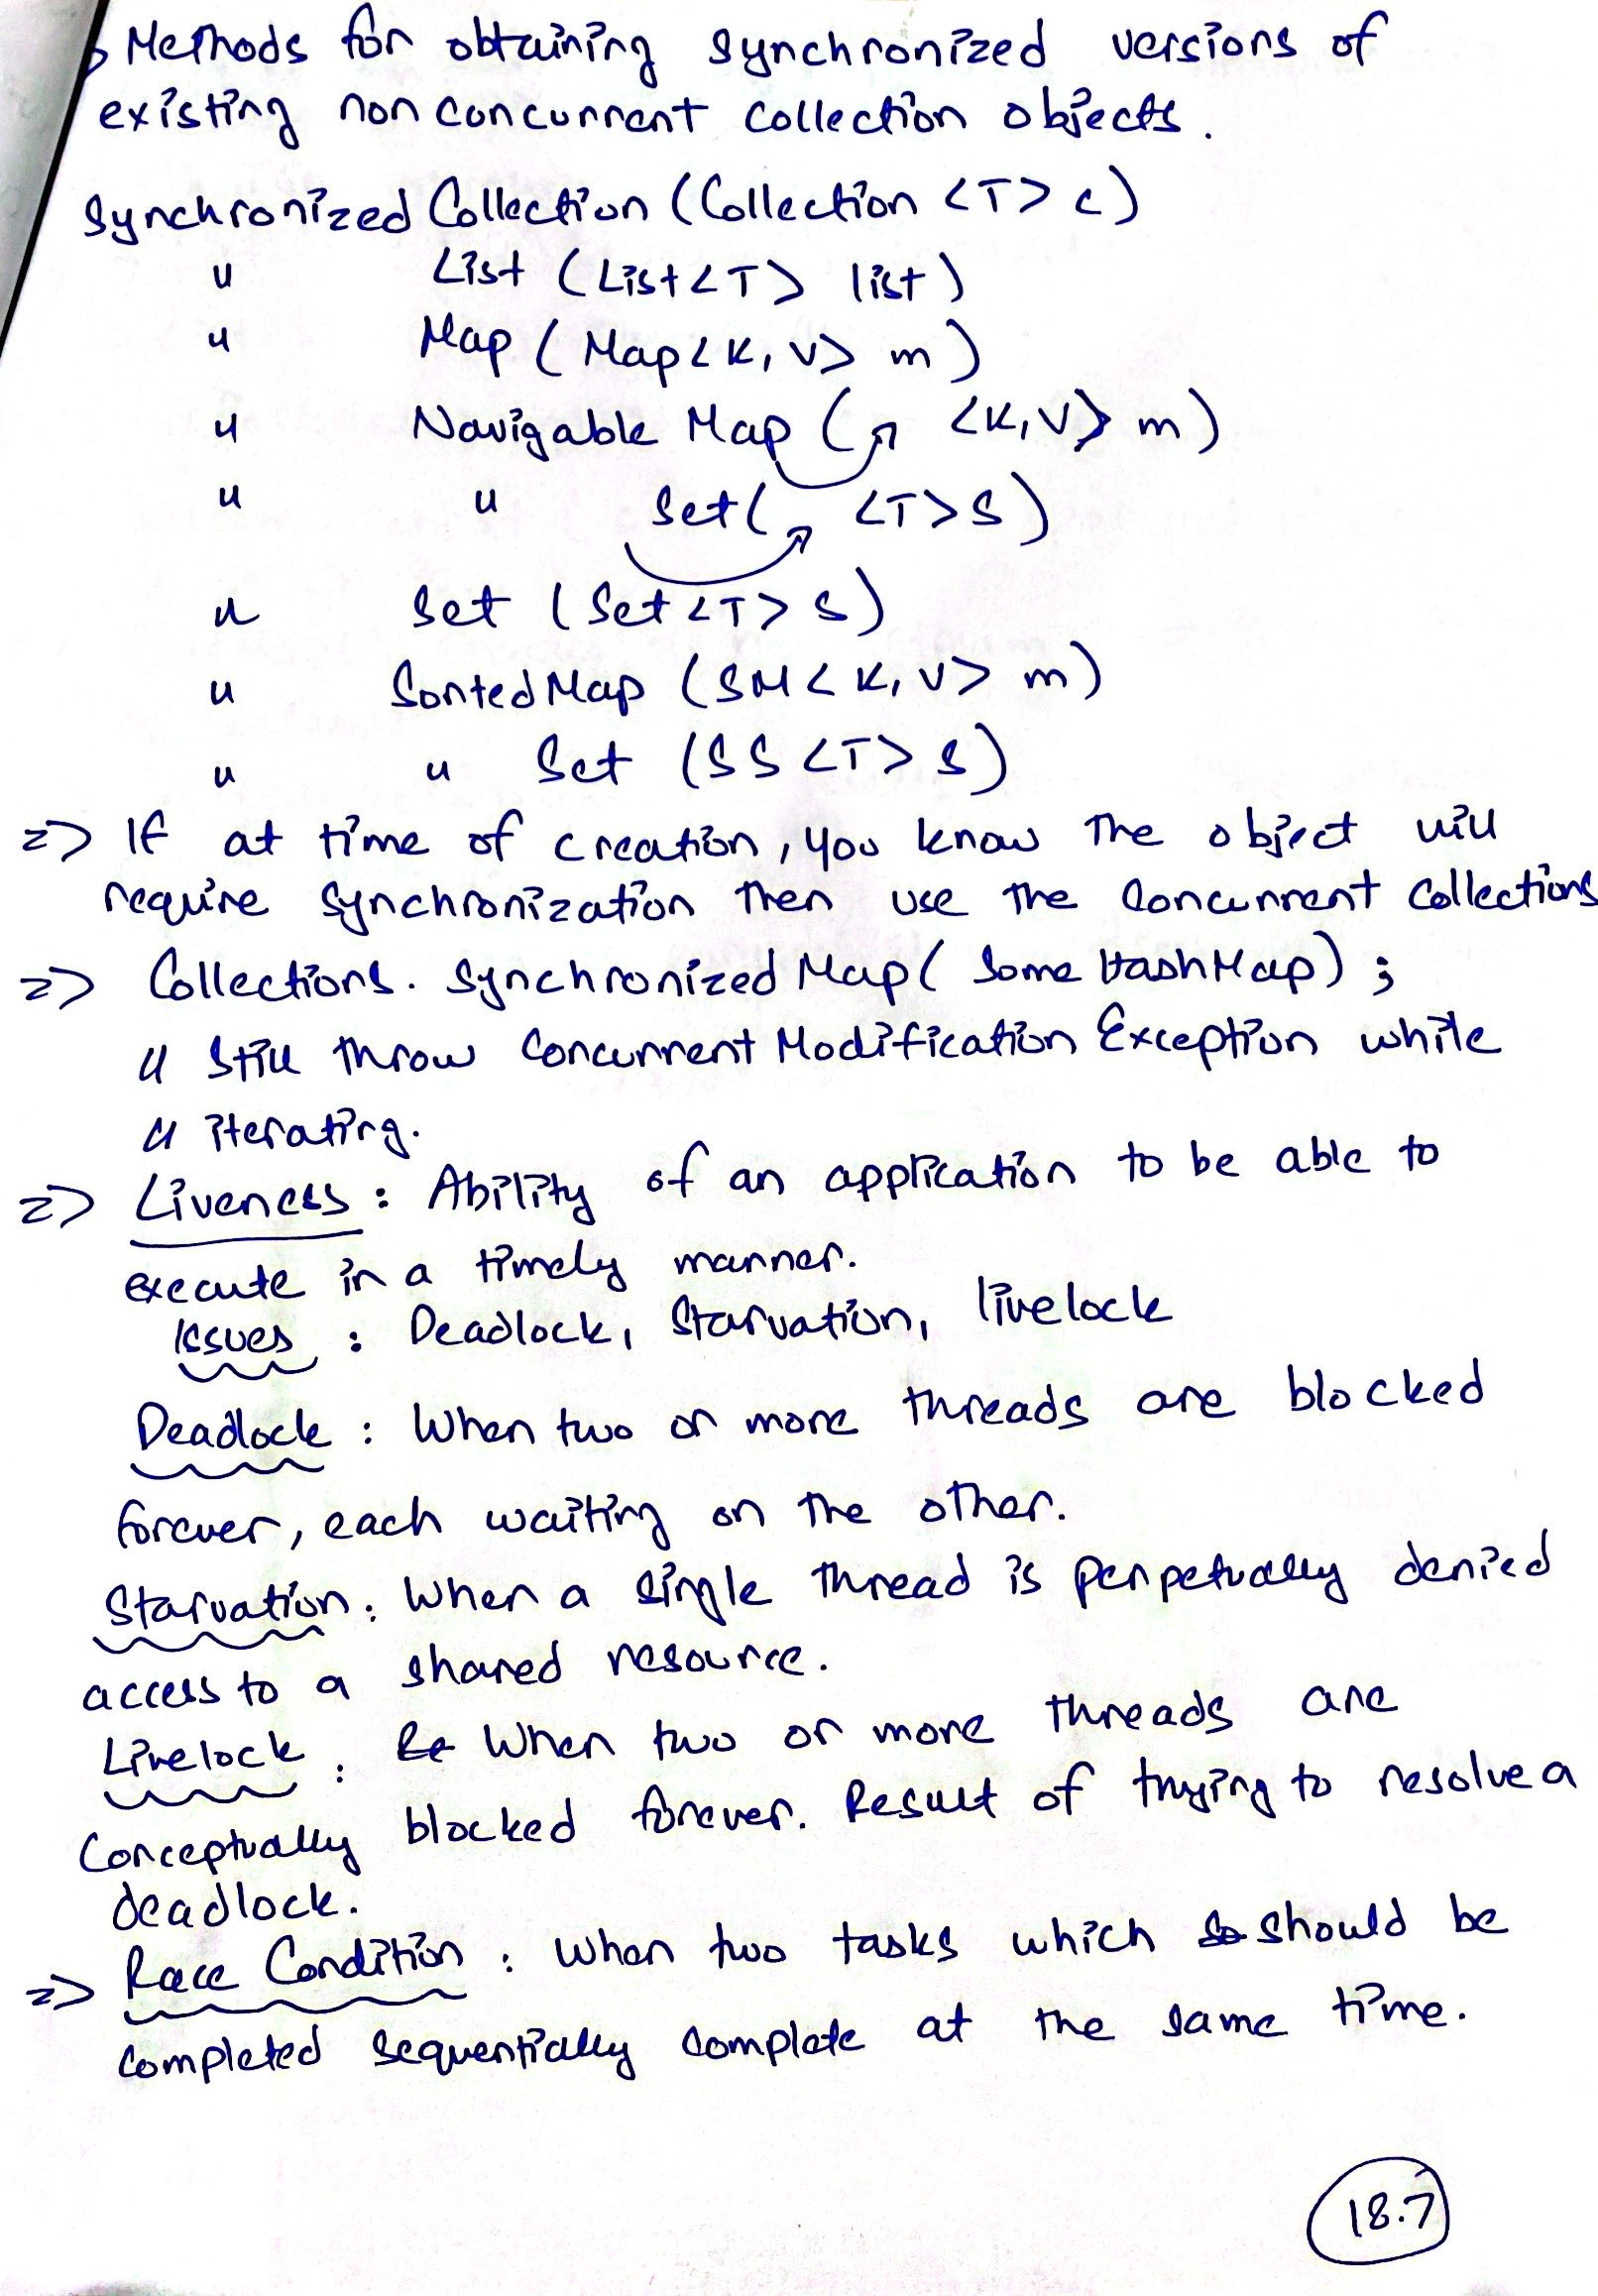 Methods for obtaining synchronized versions of
existing non concurrent collection objects.
Synchronized Collection (Collection <T> c)
" List (List<T> list)
" Map ( Map<K, V> m )
" Navigable Map ( <K, V> m )
" " Set( <T> S )
" Set ( Set <T> S )
" Sorted Map ( SM < K, V > m )
" " Set ( SS <T> S )
=> If at time of creation, you know the object will
require synchronization then use the Concurrent Collections
=> Collections. Synchronized Map( Some HashMap) ;
" Still throw Concurrent Modification Exception while
" iterating.
=> Liveness : Ability of an application to be able to
execute in a timely manner.
Issues : Deadlock, Starvation, livelock
Deadlock : When two or more threads are blocked
forever, each waiting on the other.
Starvation : When a single thread is perpetually denied
access to a shared resource.
Livelock : When two or more threads are
Conceptually blocked forever. Result of trying to resolve a
deadlock.
=> Race Condition : When two tasks which should be
completed sequentially complete at the same time.
18.7